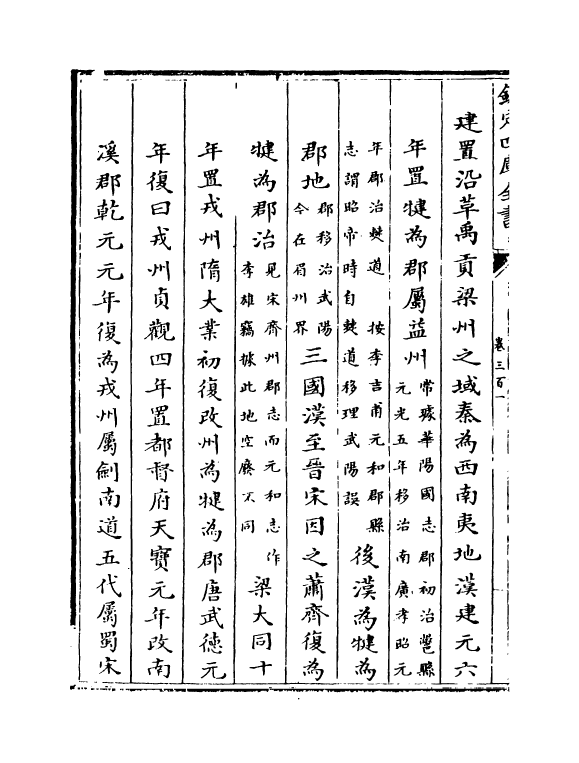 欽定四庫全書
卷三百一
建置沿革禹貢梁州之域秦為西南夷地漢建元六
年置犍為郡屬益州
常璩華陽國志郡初治鄨縣
元光五年移治南廣孝昭元
年郡治僰道 按李吉甫元和郡縣
志謂昭帝時自僰道移理武陽誤
後漢為犍為
郡地
郡移治武陽
今在眉州界
三國漢至晉宋因之蕭齊復為
犍為郡治
見宋齊州郡志而元和志作
李雄竊據此地空廢不同
梁大同十
年置戎州隋大業初復改州為犍為郡唐武德元
年復曰戎州貞觀四年置都督府天寶元年改南
溪郡乾元元年復為戎州屬劍南道五代屬蜀宋